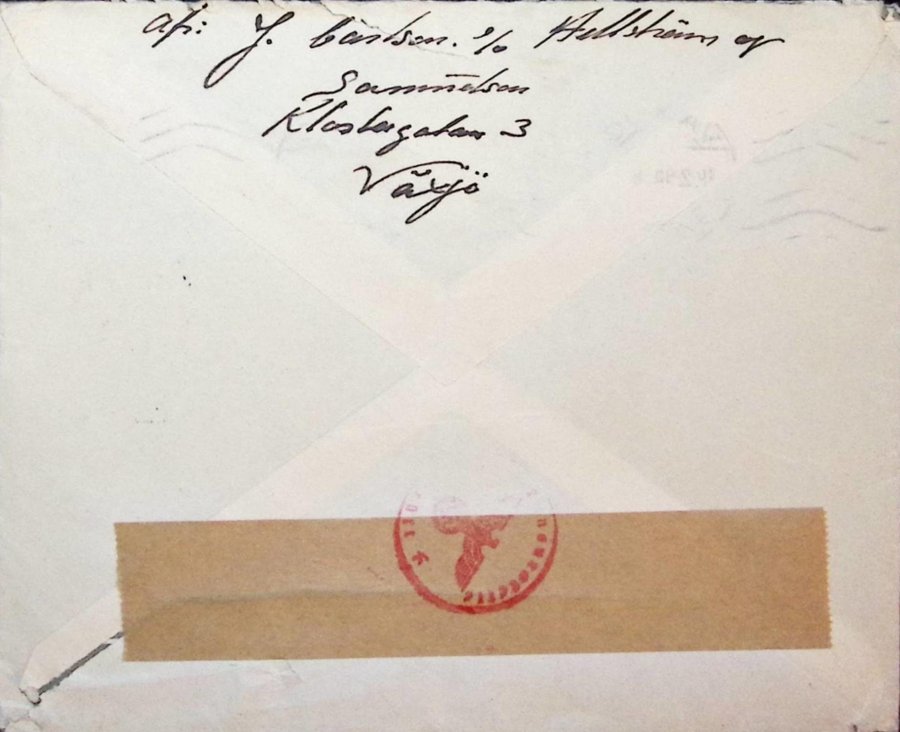 afs: J. Carlson. c/o Hellström og
Samuelson
Klostergatan 3
Växjö